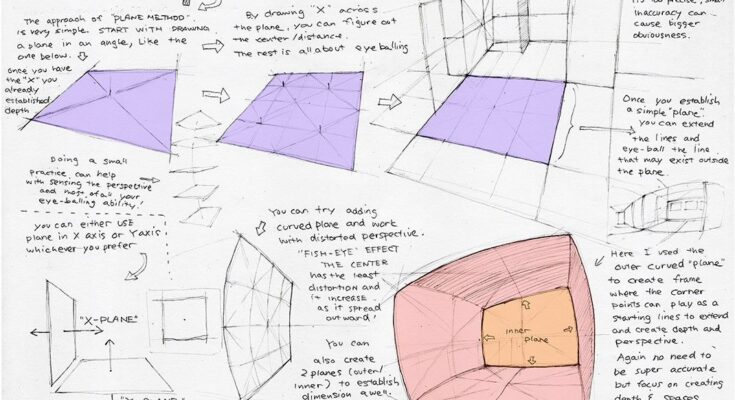 The approach of "PLANE METHOD"
is very simple. START WITH DRAWING
a plane in an angle, like the
one below.
By drawing "X" across
the plane, you can figure out
the center/distance.
The rest is all about eyeballing
inaccuracy can
cause bigger
obviousness.
once you have
the "X" you
already
established
depth
Once you establish
a simple "plane",
you can extend
the lines and
eye-ball the line
that may exist outside
the plane.
Doing a small
practice can help
with sensing the perspective
and most of all your
eye-balling ability!
You can either USE
plane in X axis or Y axis
whichever you prefer
"X-PLANE"
You can try adding
curved plane and work
with distorted perspective.
"FISH-EYE" EFFECT
THE CENTER
has the least
distortion and
it increase
as it spread
outward!
You can
also create
2 planes (outer/
inner) to establish
dimension as well.
inner
plane
Here I used the
outer curved "plane"
to create frame
where the corner
points can play as a
starting lines to extend
and create depth and
perspective.
Again no need to
be super accurate
but focus on creating
depth & spaces